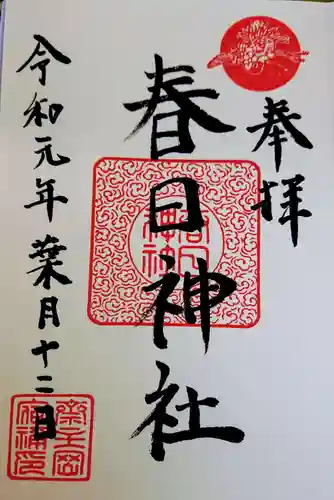 奉拝
春日神社
令和元年葉月十二日